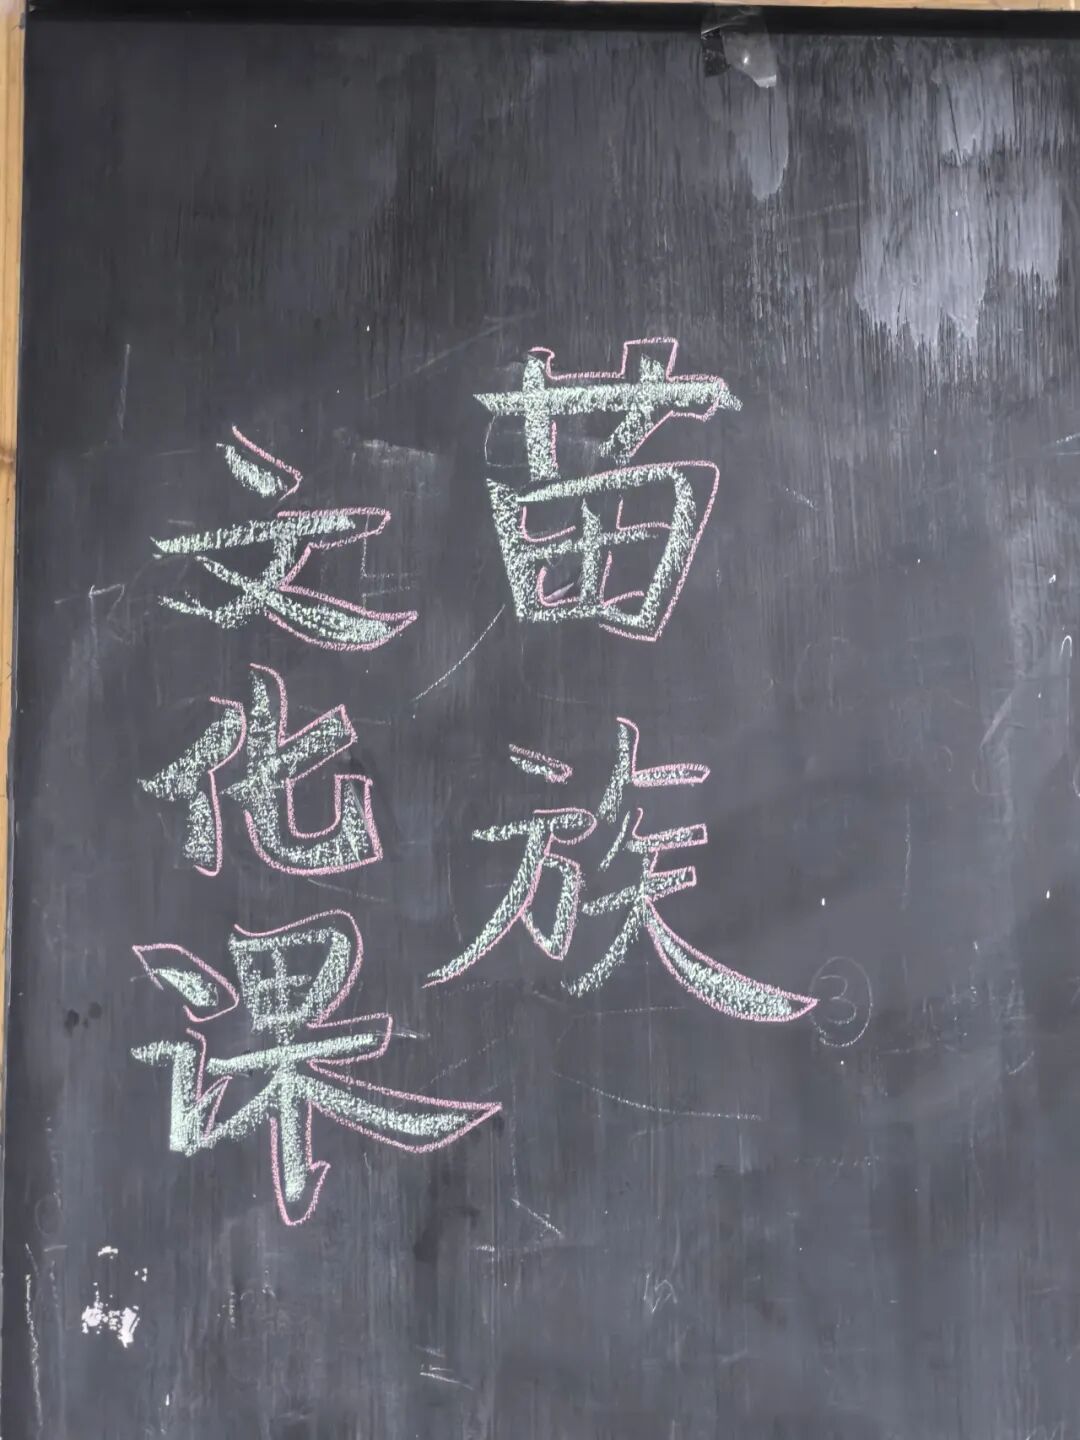 苗族
文化课
③